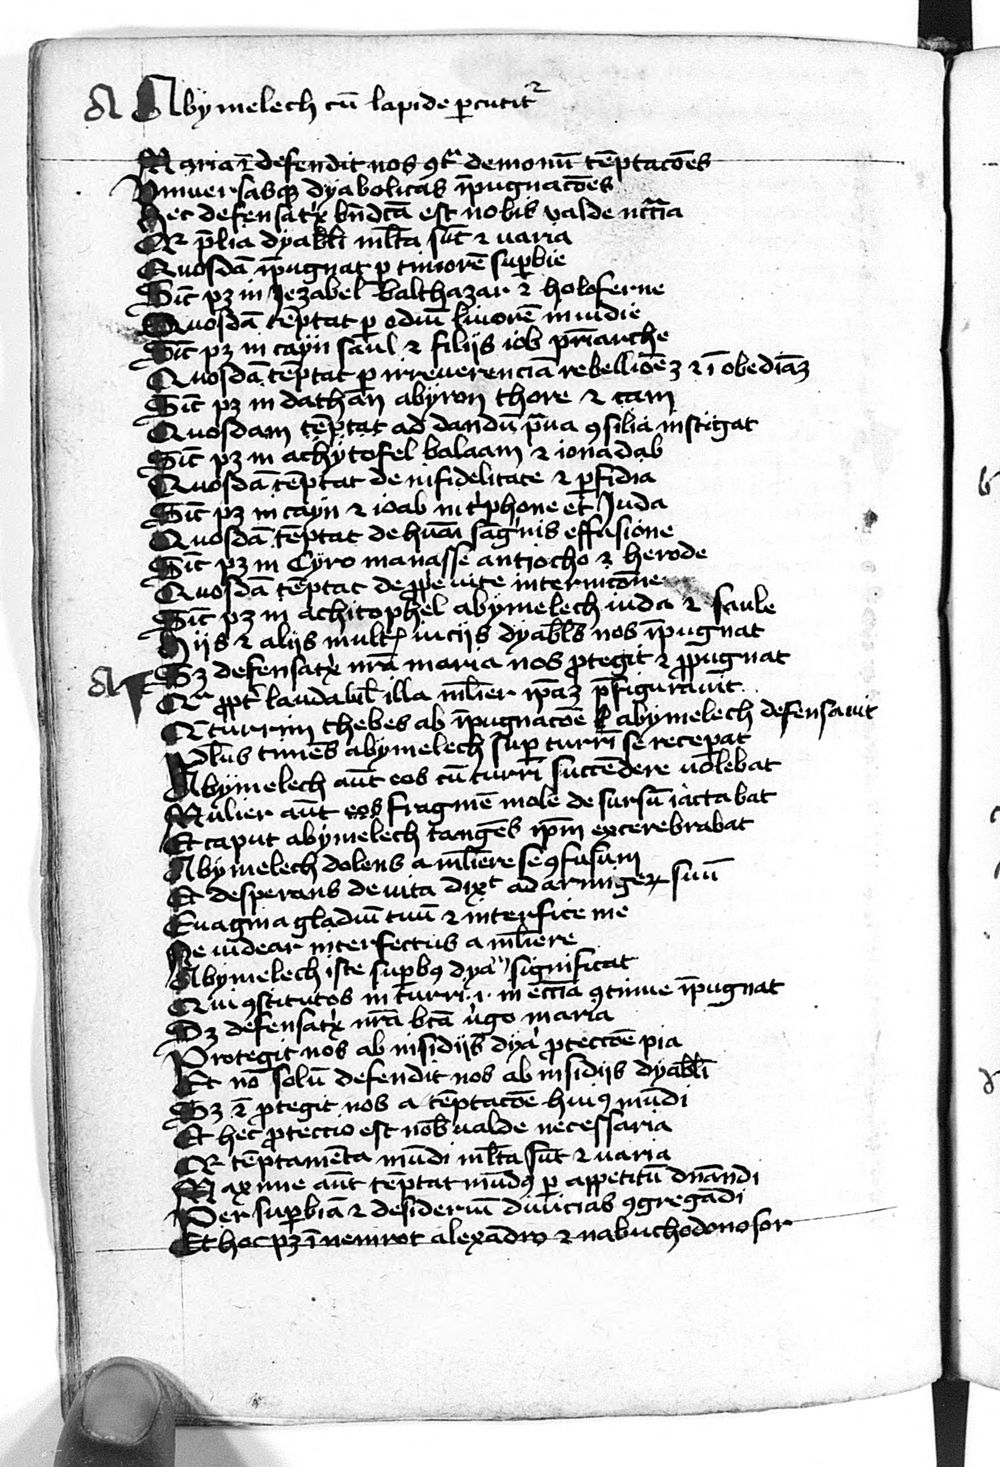 A Abymelech cū lapide ꝑcutit᷑
Maria ē defendit nos ꝯtᵃ demonū tēptacōes
Vniuersasqꝫ dyabolicas īpugnacōes
Hec defensatͥx bn̄dc̄a est nobis valde nc̄c̄ia
Qꝛ p̄lia dyabl̄i ml̄ta sūt ⁊ uaria
Quosdā īpugnat ꝑ timorē suꝑbie
Sic̄ pꝫ in Jezabel balthazar ⁊ holoferne
Quosdā tēptat ꝑ odiū liuorē inuidie
Sic̄ pꝫ in cayn saul ⁊ filijs iob pr̄iarche
Quosdā tēptat ꝑ irreuerenciā rebellioēꝫ ⁊ īobediāꝫ
Sic̄ pꝫ in dathan abyron thore ⁊ cam
Quosdam tēptat ad dandū p̄ua ꝯsilia instigat
Sic̄ pꝫ in achytofel balaam ⁊ ionadab
Quosdā tēptat de infidelitate ⁊ ꝑfidia
Sic̄ pꝫ in cayn ⁊ ioab in tͥphone et Juda
Quosdā tēptat de huān sāgͥnis effusione
Sic̄ pꝫ in Cyro manasse antiocho ⁊ herode
Quosdā tēptat de ꝓp̄e uite intericōne
Sic̄ pꝫ in achitophel abymelech iuda ⁊ saule
Hijs ⁊ alijs mult̄ uicijs dyabl̄s nos īpugnat
Sꝫ defensatͥx nr̄a maria nos ꝓtegit ⁊ ꝓpūgnat
A Qꝛ ꝓpt̄ laudabil̄ illa ml̄ier ip̄aꝫ p̄figurauit
Q turrim thebes ab īpugnacōe abymelech defensauit
Pl̄us timēs abymelech suꝑ turrī se receꝑat
Abymelech aūt eos cū turrī succēdere uolebat
Mulier aūt eos fragmē mole de sursū iactabat
Et caput abymelech tangēs ip̄m excerebrabat
Abymelech dolens a ml̄iere se ꝯfusum
Et desperans de uita dixͭ ad armigeꝝ suū
Euagina gladiū tuū ⁊ interfice me
Ne uidear interfectus a ml̄iere
Abymelech iste suꝑbꝯ dya significat
Qui ꝯstitutos in turri .i. in ecc̄ia ꝯtinue īpugnat
Sꝫ defensatͥx nr̄a bt̄a uͥgo maria
Protegit nos ab insidijs dya ꝓteccōe pia
Et nō solū defendit nos ab insidijs dyabl̄i
Sꝫ ē ꝓtegit nos a tēptacōe huiꝯ mūdi
Et hec ꝓteccio est nob̄ ualde necessaria
Qꝛ tēptamēta mūdi ml̄ta sūt ⁊ uaria
Maxime aūt tēptat mūdꝯ ꝑ appetitū dn̄andi
Per suꝑbiā ⁊ desideriū diuicias ꝯgregādi
Et hoc pꝫ ī nemrot alexādro ⁊ nabuchodonosor